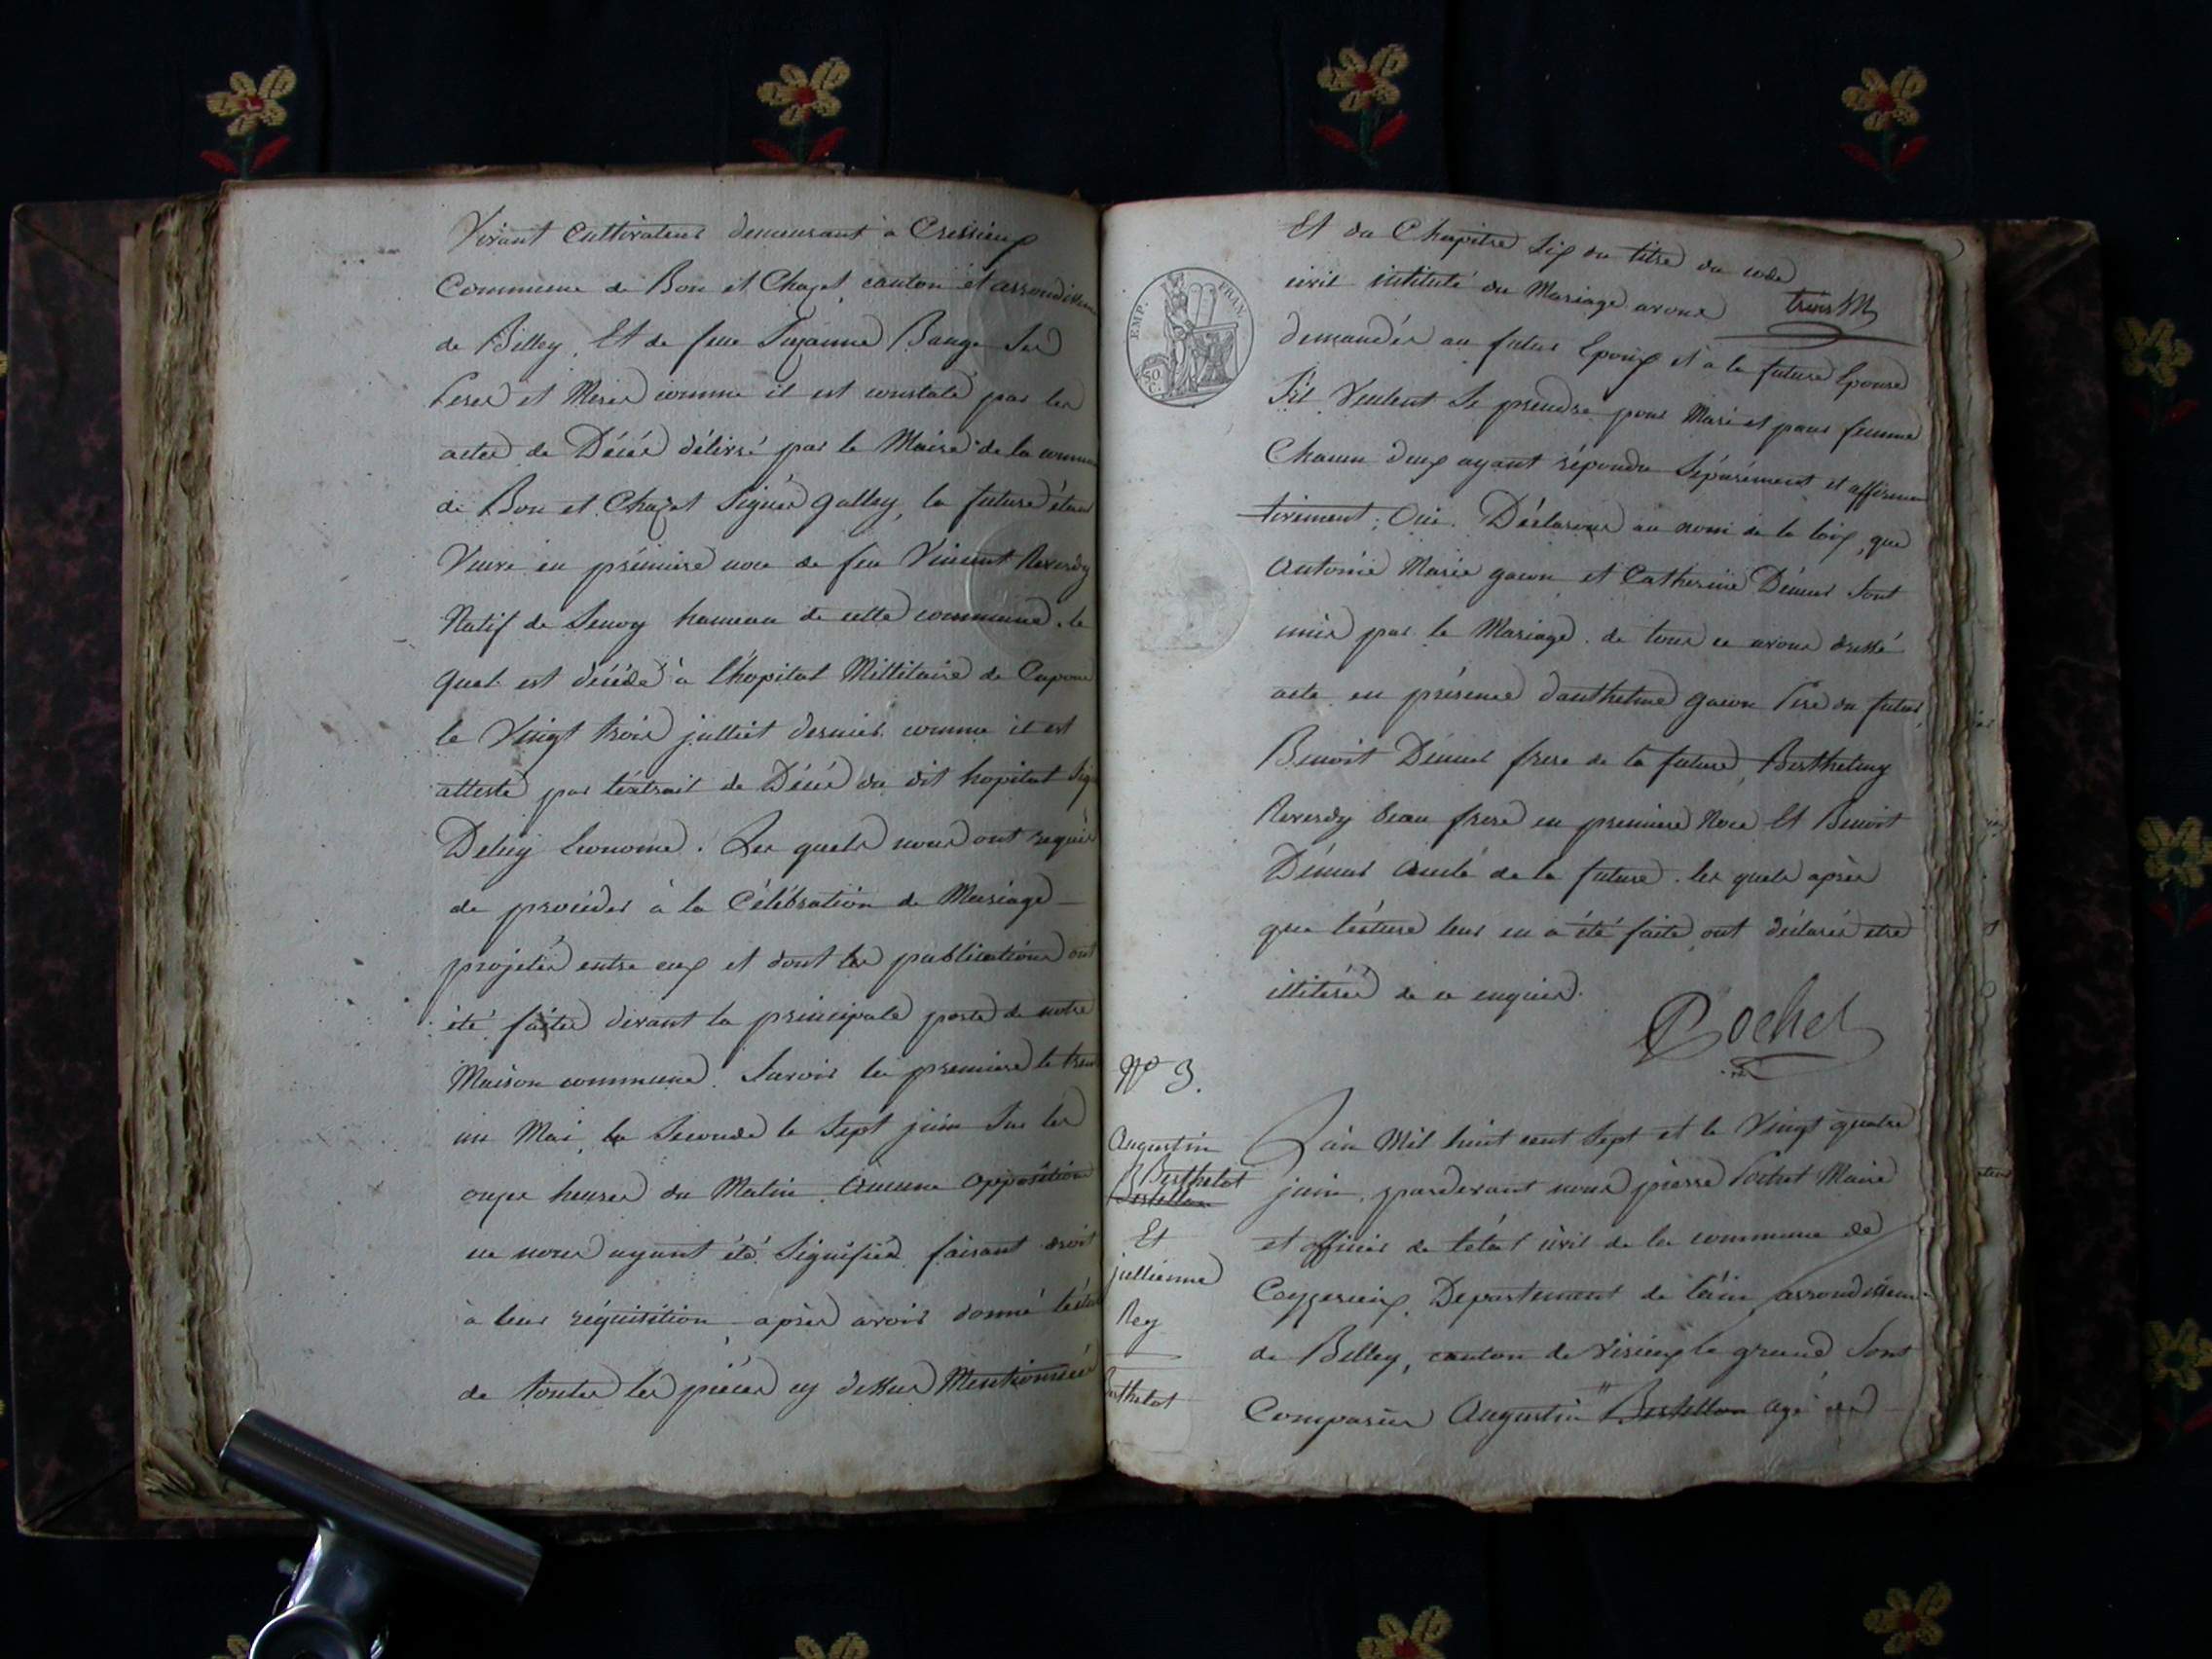 Vivant Cultivateur demeurant à Cressieux
Commune de Bon et Chazet, canton et arrondissem
de Belley, Et de feue Suzanne Bauge Ses
Peres et Meres comme il est constaté par les
actes de Décés délivré par le Maire de la commu
de Bon et Chazet Signés Gallay, la future étant
Veuve en prémiere noce de feu Vincent Reverdy
Natif de Senoy hameau de cette commune, le
quel est décédé à l'hopital Millitaire de Capoue
le Vingt trois julliet dernier comme il est
attesté par l'éxtrait de Décés du dit hopital Sig
Econome. Les quels nous ont requis
de procéder à la Célébration de Mariage
projetés entre eux et dont les publications ont
été faites devant la principale porte de notre
Maison commune. Savoir la premiere le trent
un Mai, la Seconde le Sept juin Sur les
onzes heures du Matin, Aucune Opposition
ne nous ayant été Signifiée, faisant droit
à leur réquisition, après avoir donné léctu
de toutes les piéces cy dessus Mentionnées
Et du Chapitre Six du titre du code
civil intitulé du Mariage avons
demandés au futur Epoux et à la future Epouse
S'il Veulent Se prendre pour Mari et pour femme
Chacun d'eux ayant répondu Séparément et affirma
tivement, Oui. Déclarons au nom de la loix, que
Antoine Marie gacon et Catherine Démur Sont
unis par le Mariage. de tous ce avons dréssé
acte en présence d'anthelme gacon Pere du futur,
Benoit Démur frere de la future, Barthelmy
Reverdy beau frere en premiere Noce Et Benoit
Démur Oncle de la future. les quels après
que lécture leur en a été faite, ont déclarés etre
illiterés de ce enquis.
Pochet
EMP. FRAN.
50 C.
N° 3.
Augustin
Berthelot
Bertellon
Et
jullienne
Rey
Berthelot
L'ain Mil huit cent Sept et le Vingt quatre
juin, pardevant nous pierre Pochet Maire
et officier de l'état civil de la commune de
Ceyzerieux, Departement de l'ain, arrondissem
de Belley, canton de Virieux le grand Sont
Comparus Augustin Bertellon agé de